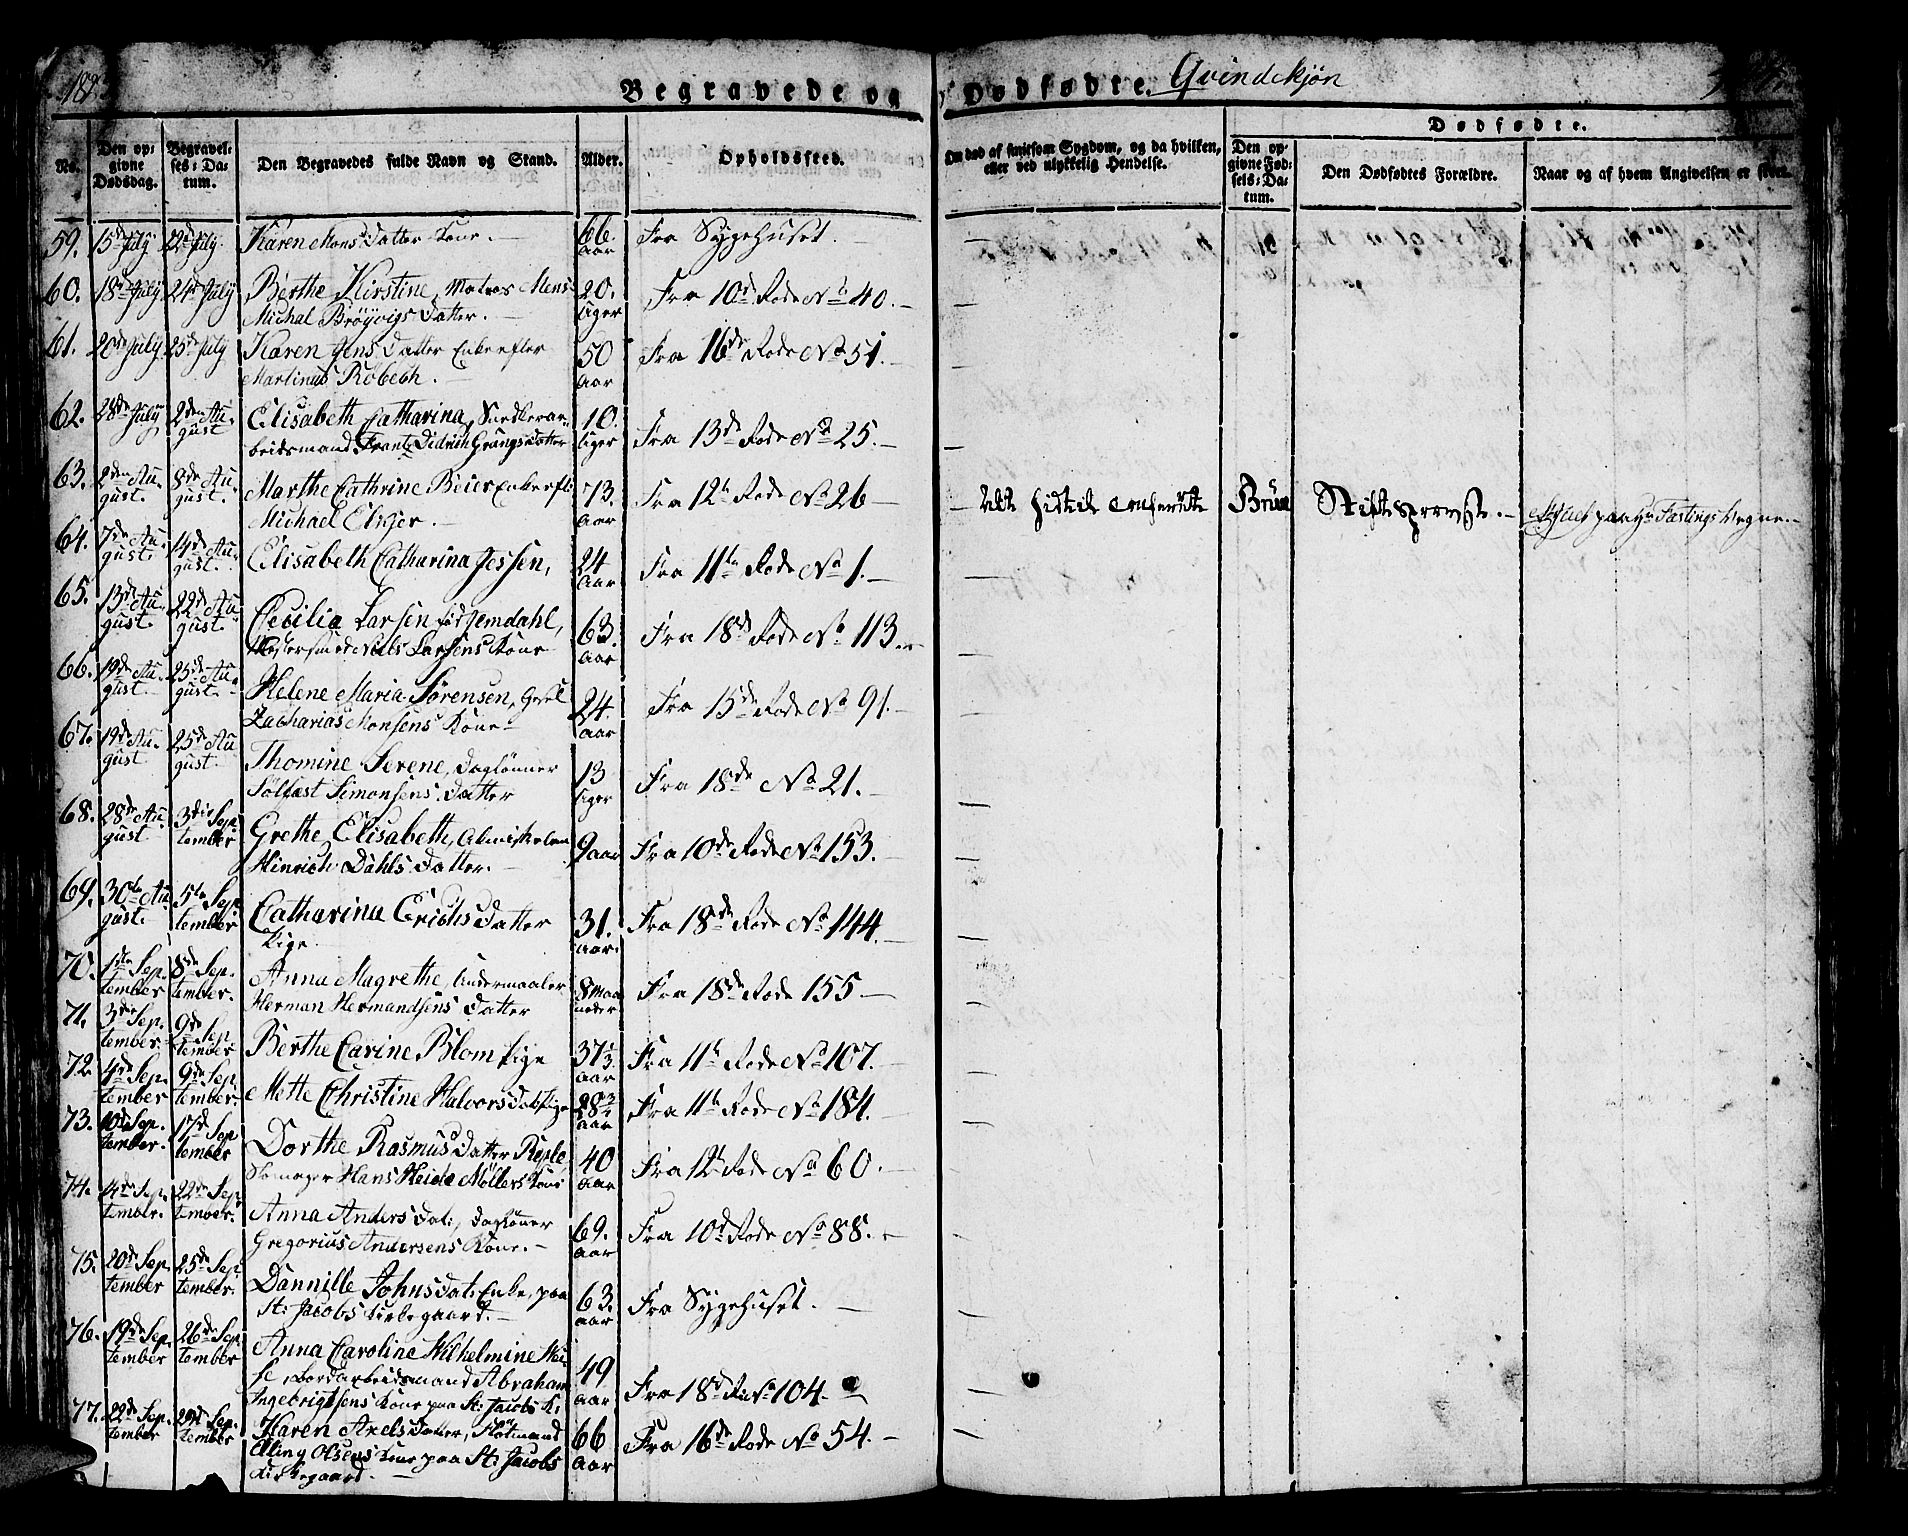 Begravede og Dødfødte. Qvindekjøn
No.
Den opgivne Dødsdag.
Begravelses-Datum.
Den Begravedes fulde Navn og Stand.
Alder.
Opholdssted.
Om død af smitsom Sygdom, og da hvilken, eller ved ulykkelig Hendelse.
Dødfødte.
Den opgivne Fødsels-Datum.
Den Dødfødtes Forældre.
Naar og af hvem Angivelsen er skeet.
59. 15de July 22de July. Karen Mons Datter Kone. — 66. Aar Fra Sygehuset. —
60. 18de July 24de July Berthe Kirstine, Matros Mens
Michal Brøyvigs Datter. — 20. Ager Fra 10de Rode No 40. —
61. 20de July 25de July Karen Jens Datter Enke efter
Martinus Robech. — 50 Aar Fra 16de Rode No 51. —
62. 28de July 2den August Elisabeth Catharina, Snedkerar-
beidsmand Frantz Didrich Grungs Datter 10. Ager Fra 13de Rode No 25. —
63. 2den August. 8de August. Marthe Cathrine Beier Enke eft:
Michael Elsjer. — 73. Aar Fra 12te Rode No 26 —
64. 7de August. 14de August. Elisabeth Catharina Jessen, 24 Aar Fra 11te Rode No 1. —
65. 13de August. 22de August. Cecilia Larsen fød Jemdahl,
Mestersmed Nills Larsens Kone 63. Aar Fra 18de Rode No 113. —
66. 19de August. 25de August. Helene Maria Sørensen, Gesel
Zacharias Monsens Kone — 24. Aar Fra 15de Rode No 91. —
67. 19de August 25de August. Thomine Serene, Daglønner
Sølfast Simonsens Datter 13 Ager Fra 18de No 21. —
68. 28de August 3die September Grethe Elisabeth,
Hinrich Dahls Datter. — 9 aar Fra 10de Rode No 153. —
69. 30te August. 5te September Catharina Erichs Datter
Pige — 31. Aar. Fra 18de Rode No 144. —
70. 1ste September 8de September. Anna Magrethe, Undermaaler
Herman Hermandsens Datter 8 Maaneder Fra 18de Rode 155 —
71. 3die September. 9de September Berthe Carine Blom Pige 37 1/3 Aar Fra 11te Rode No 107. —
72. 4de September 9de September. Mette Christine Halvors Dat: Pige 28 3/4 Aar Fra 11te Rode No 184. —
73. 10de September. 17de September Dorthe Rasmus Datter Reple
Hans Heide Møllers Kone 40 Aar Fra 12te Rode No 60. —
74. 14de September. 22de September. Anna Anders Dat:, Dagløner
Gregorius Andersens Kone. — 69. Aar Fra 10de Rode No 88. —
75. 20de September 25de September. Dannille Johns Dat: Enke, paa
St: Jacobs Kirkegaard. — 63. Aar Fra Sygehuset. —
76. 19de September 26de September Anna Carolina Wilhelmine Wei-
se, Bordarbeidsmand Abraham
Ingebrigtsens Kone paa St: Jacobs K: 49 Aar Fra 18de R: No 104. —
77. 22de September 29de September Karen Axels Datter,
Elling Olsens Kone paa St: Jacobs
Kirkegaard. — 66 Aar Fra 16de Rode No 54. —
Stiftsprovst. —